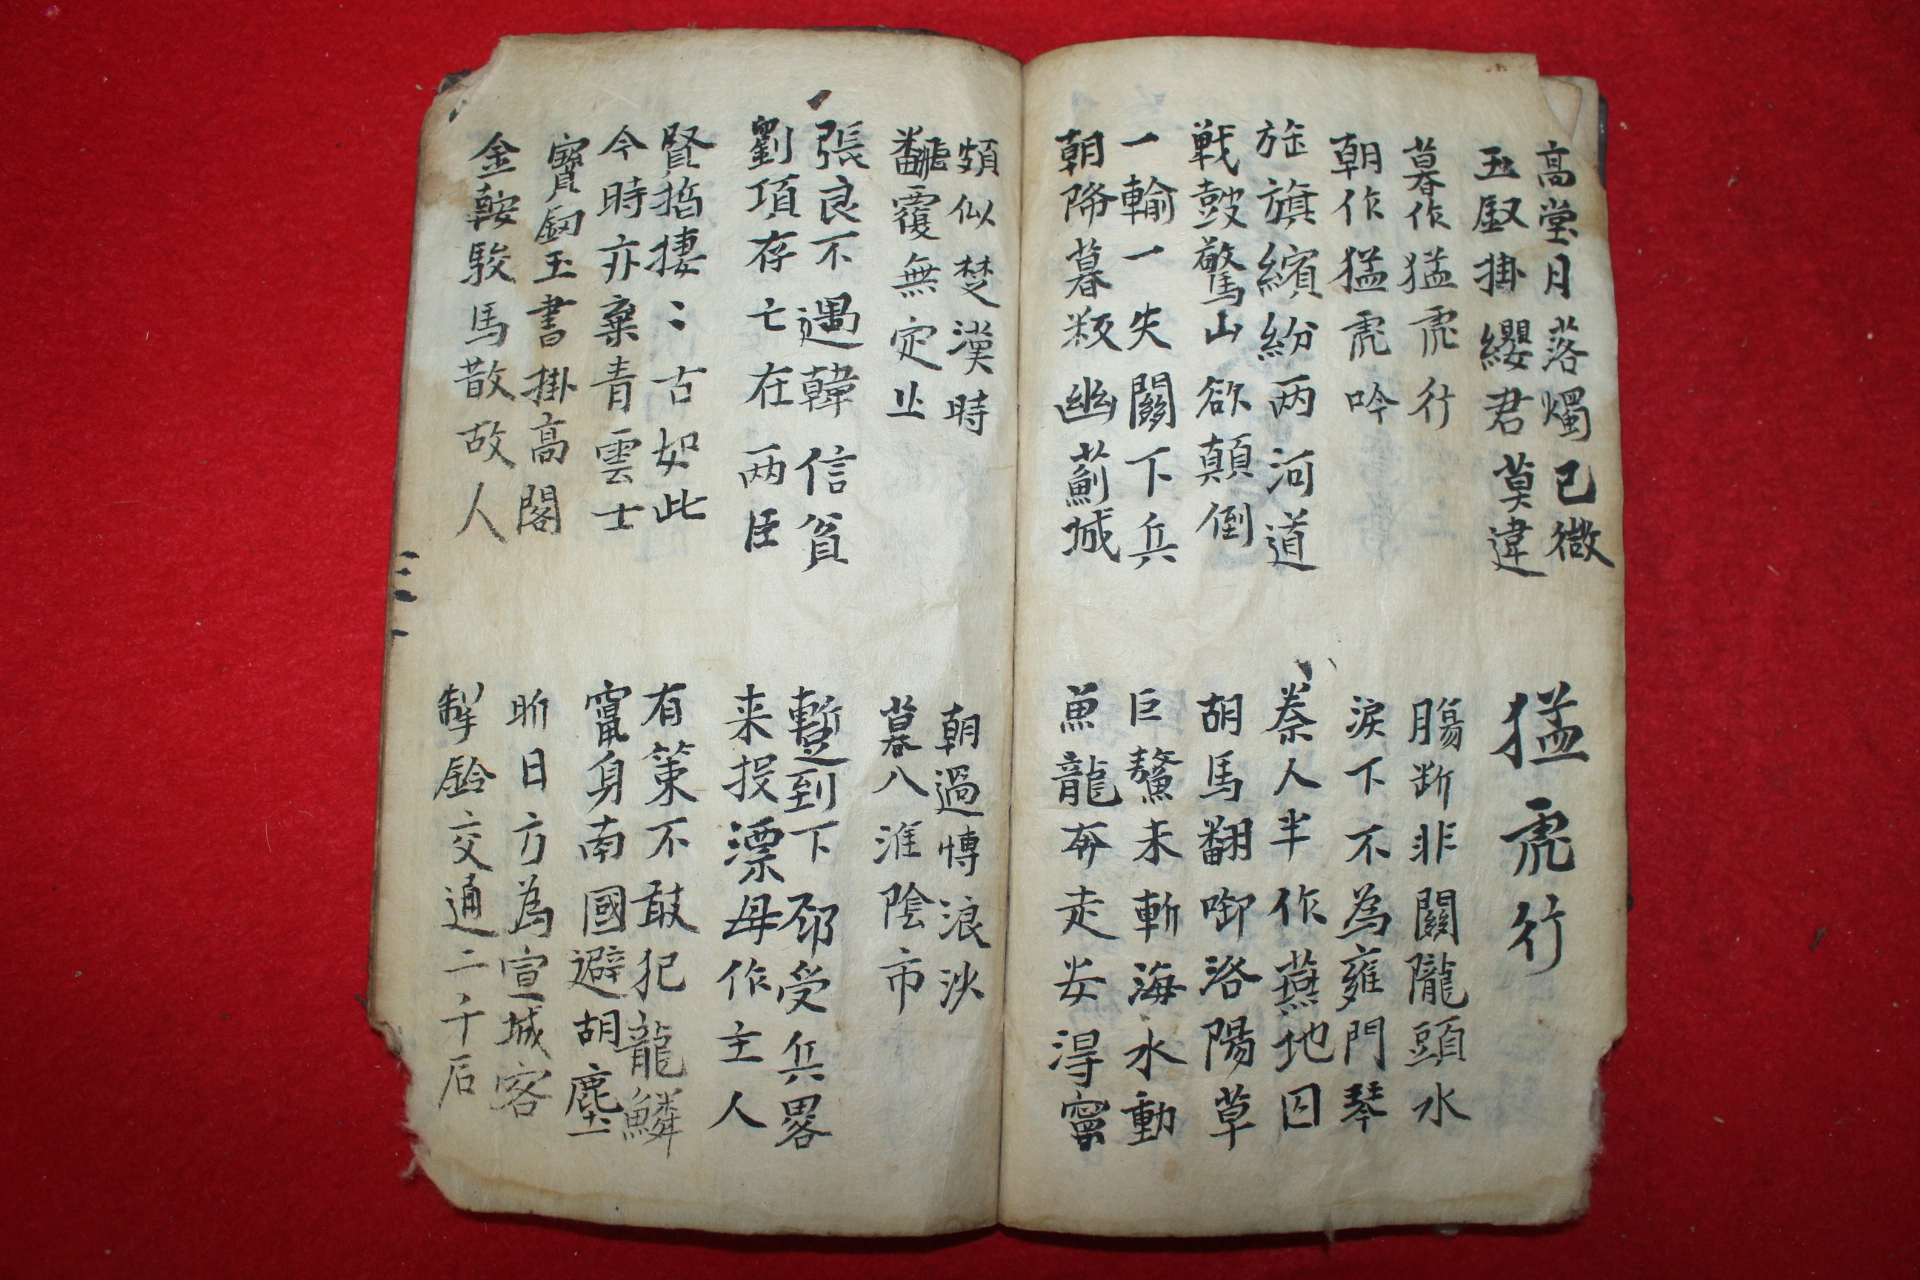 高堂月落燭已微
玉釵掛纓君莫違
猛虎行
暮作猛虎行
朝作猛虎吟
腸斷非關隴頭水
淚下不為雍門琴
旌旗繽紛两河道
戦鼓驚山欲顛倒
秦人半作燕地囚
胡馬翻啣洛陽草
一輸一失關下兵
朝降暮叛幽薊城
巨鰲未斬海水動
魚龍奔走安得寧
頗似楚漢時
飜覆無定止
朝過博浪沙
暮入淮陰市
張良不遇韓信貧
劉項存亡在两臣
暫到下邳受兵畧
来投漂母作主人
賢哲棲〻古如此
今時亦棄青雲士
有策不敢犯龍鱗
竄身南國避胡塵
寶釼玉書掛高閣
金鞍駿馬散故人
昨日方為宣城客
掣鈴交通二千石